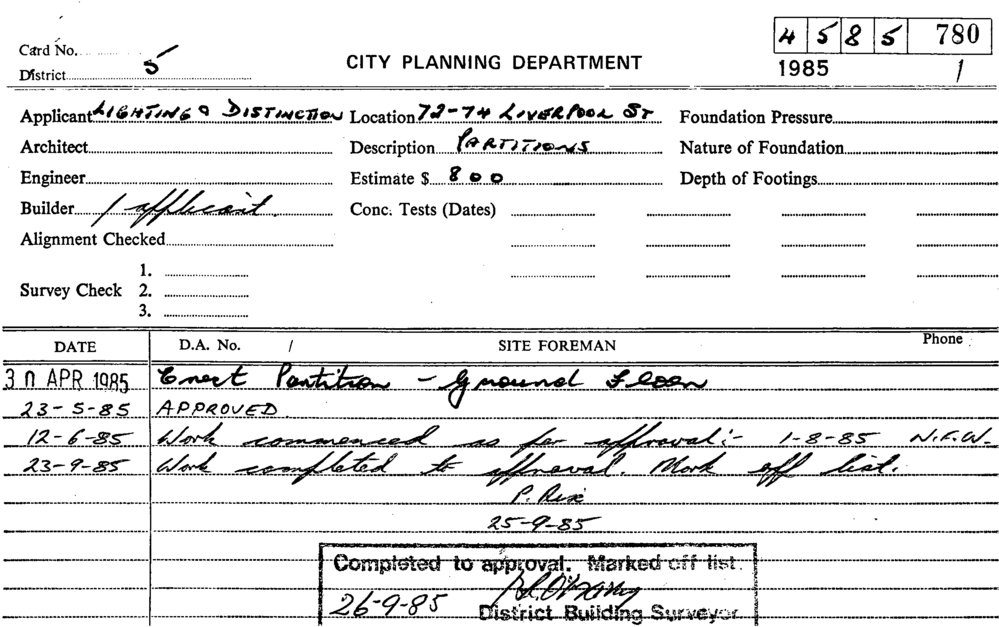 4 5 8 5 780
Card No.
CITY PLANNING DEPARTMENT
1985 1
District 5
Applicant LIGHTING & DISTINCTION Location 72-74 LIVERPOOL ST Foundation Pressure
Architect Description PARTITIONS Nature of Foundation
Engineer Estimate $ 800 Depth of Footings
Builder / applicant. Conc. Tests (Dates)
Alignment Checked
1.
Survey Check 2.
3.
DATE D.A. No. / SITE FOREMAN Phone
30 APR 1985 Erect Partition - Ground Floor
23-5-85 APPROVED.
12-6-85 Work commenced as per approval:- 1-8-85 N.F.W.
23-9-85 Work completed to approval. Mark off list.
P. Rix
25-9-85
Completed to approval. Marked off list.
26-9-85 District Building Surveyor